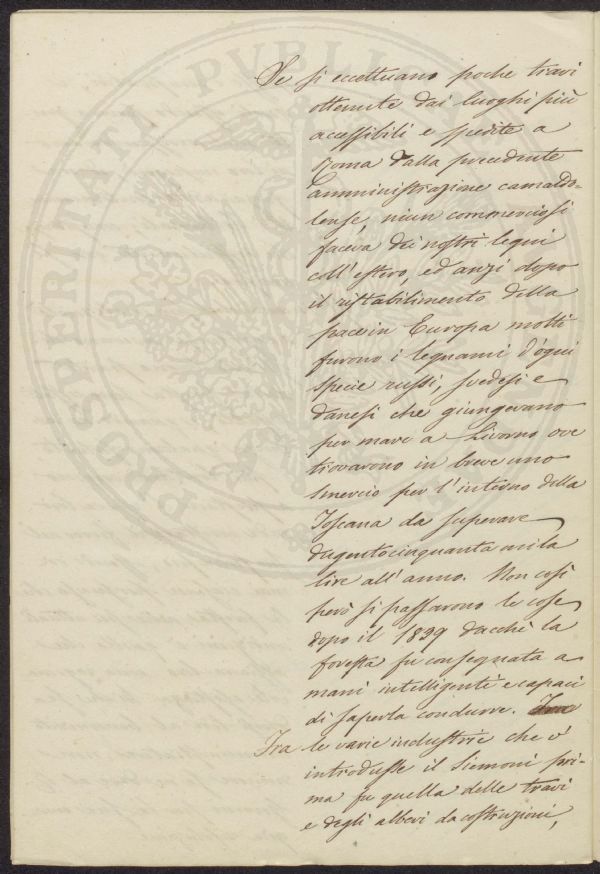 Se si eccettuano poche travi
ottenute dai luoghi più
accessibili e spedite a
Roma dalla precedente
amministrazione camaldo-
lense, niun commercio si
faceva dei nostri legni
coll'estero, ed anzi dopo
il ristabilimento della
pace in Europa molti
furono i legnami d'ogni
specie russi, svedesi e
danesi che giungevano
per mare a Livorno ove
trovarono in breve uno
smercio per l'interno della
Toscana da superare
dugentocinquanta mila
lire all'anno. Non così
però si passarono le cose
dopo il 1839 dacchè la
foresta fu consegnata a
mani intelligenti e capaci
di saperla condurre.
Tra le varie industrie che v'
introdusse il Siemoni pri-
ma fu quella delle travi
e degli alberi da costruzioni,
PROSPERITATI PVBLICAE